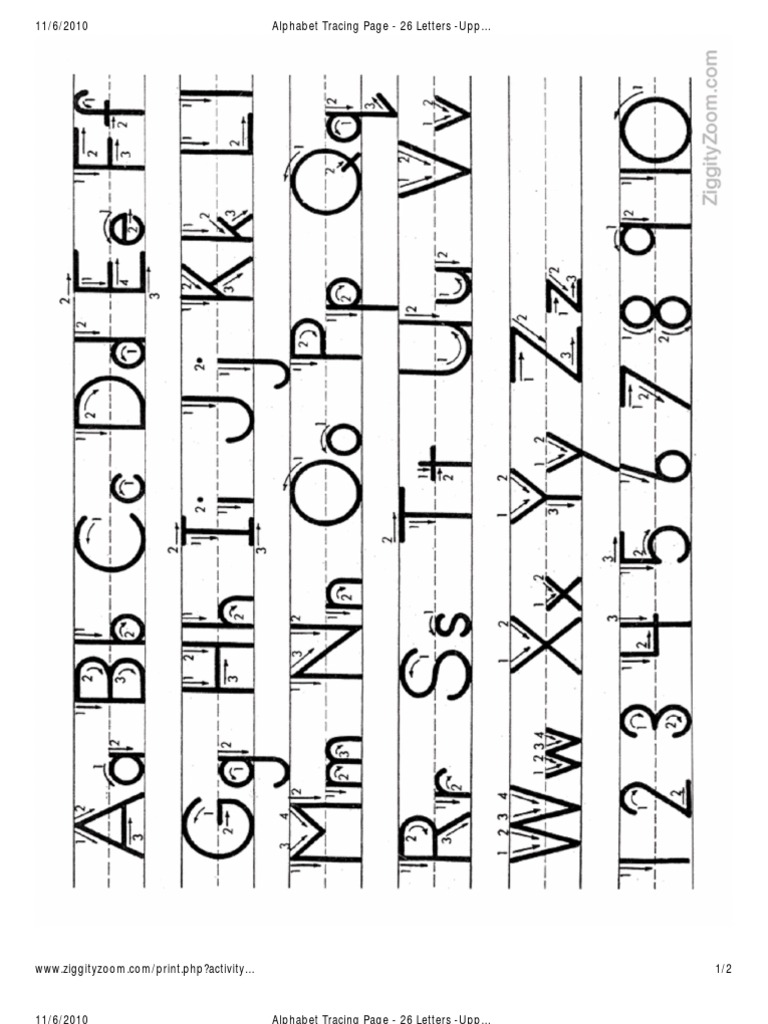 11/6/2010 Alphabet Tracing Page - 26 Letters -Upp...
Aa Bb Cc Dd Ee Ff
Gg Hh Ii Jj Kk Ll
Mm Nn Oo Pp Qq
Rr Ss Tt Uu Vv
Ww Xx Yy Zz
1 2 3 4 5 6 7 8 9 10
ZiggityZoom.com
www.ziggityzoom.com/print.php?activity... 1/2
11/6/2010 Alphabet Tracing Page - 26 Letters -Upp...